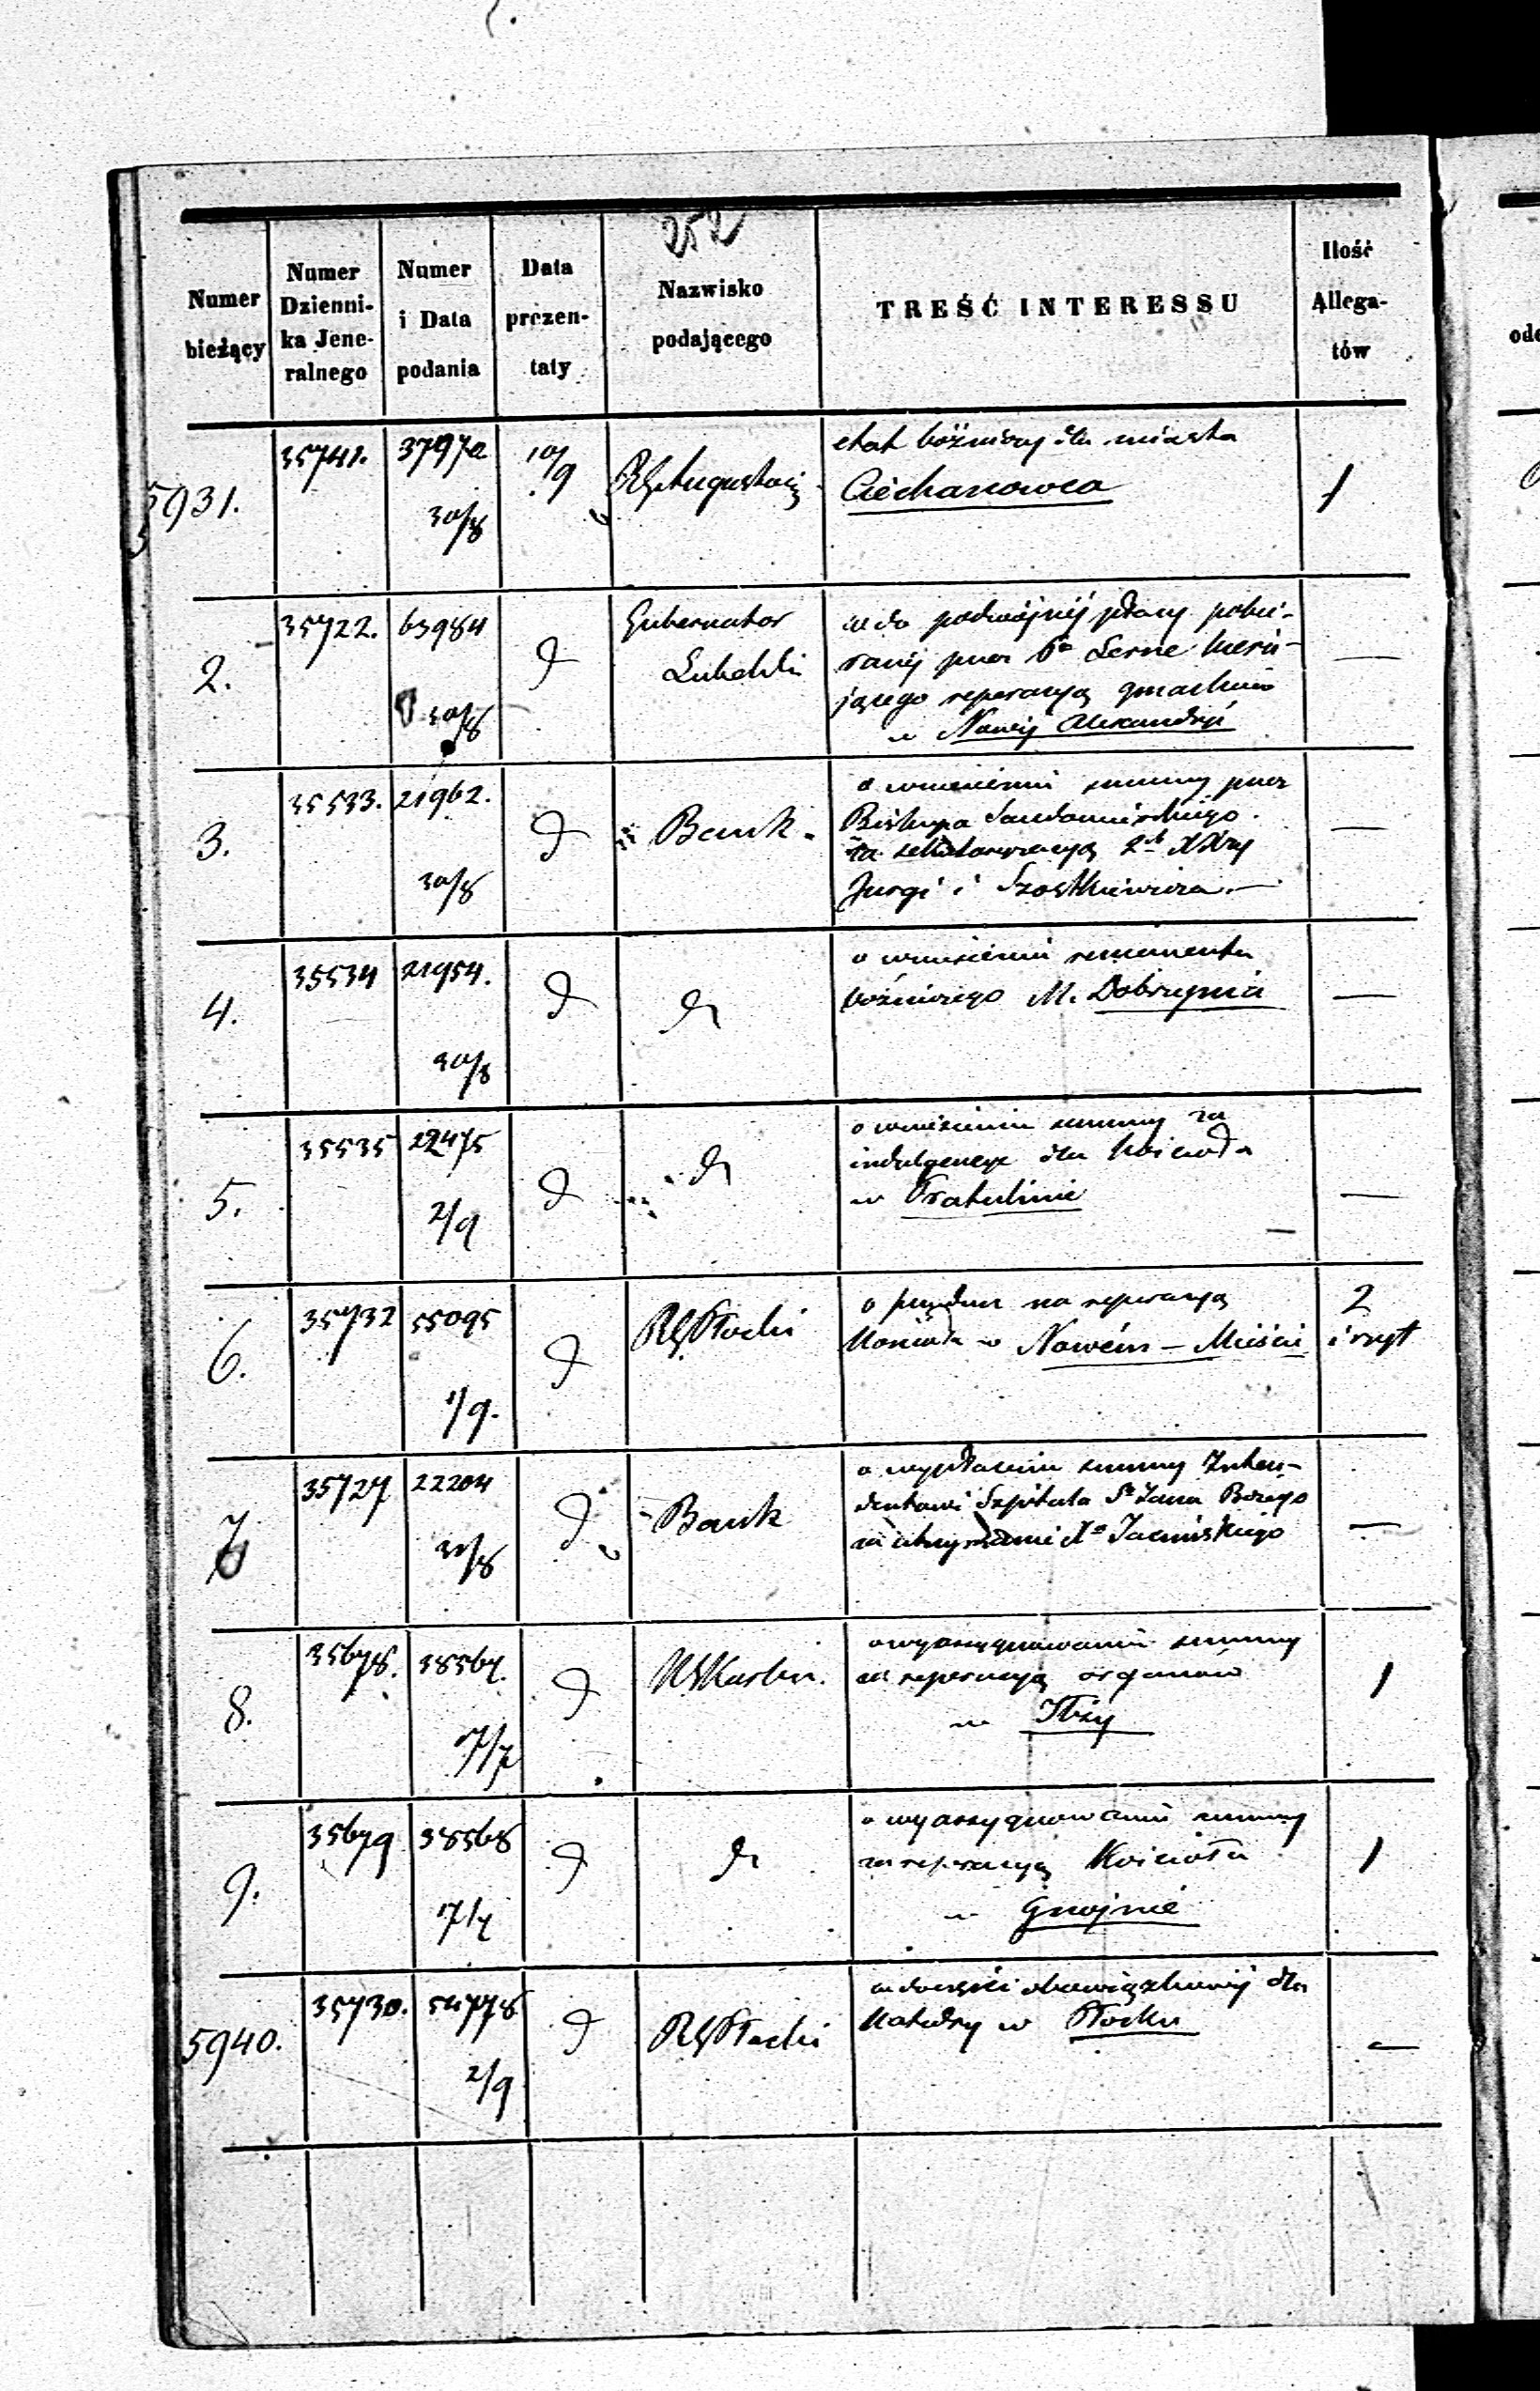 252
Numer bieżący
Numer Dzienni-
ka Jene-
ralnego
Numer i Data podania
Data prezen-
taty
Nazwisko podającego
TREŚĆ INTERESSU
Ilość Allega-
tów
5931.
35741.
37972
30/8
10/9
R.G. Augustow.
etat bóżniczy dla miasta
Ciechanowca
1
2.
35722.
63984
30/8
d
Gubernator
Lubelski
co do podwójnéj płacy pobie-
ranéj przez Lerue kieru-
jącego reperacyą gmachów
w Nowéj Alexandryi
—
3.
35533.
21962.
30/8
d
Bank.
o wniesieniu summy przez
Biskupa Sandomirskiego
za XXży
Jurgi i Szostkiewicza.—
—
4.
35534
21954.
30/8
d
dt
o wniesieniu remanentu
bóźniczego M. Dobrzynia
—
5.
35535
22475
2/9
d
dt
o wniesieniu summy za
indulgencye dla kościoła
w Pratulinie
—
6.
35732
55095
1/9.
d
RG Płocki
o fundusz na reperacyą
kościoła w Nowém-Mieście
2
i ryst
7
35727
22204
31/8
d
Bank
o wypłaceniu summy Inten-
dentowi Szpitala Sgo Jana Bożego
za utrzymanie Xa
—
8.
35678.
38567.
17/7
d
o wyassygnowanie summy
na reperacyą organów
w Iłży
1
9.
35679
38568
17/7
d
dt
o wyassygnowanie summy
na reperacyą Kościoła
w Gnojnie
1
5940.
35730.
54778
2/9
d
RG Płocki
obowiązkowéj dla
Katedry w Płocku
—